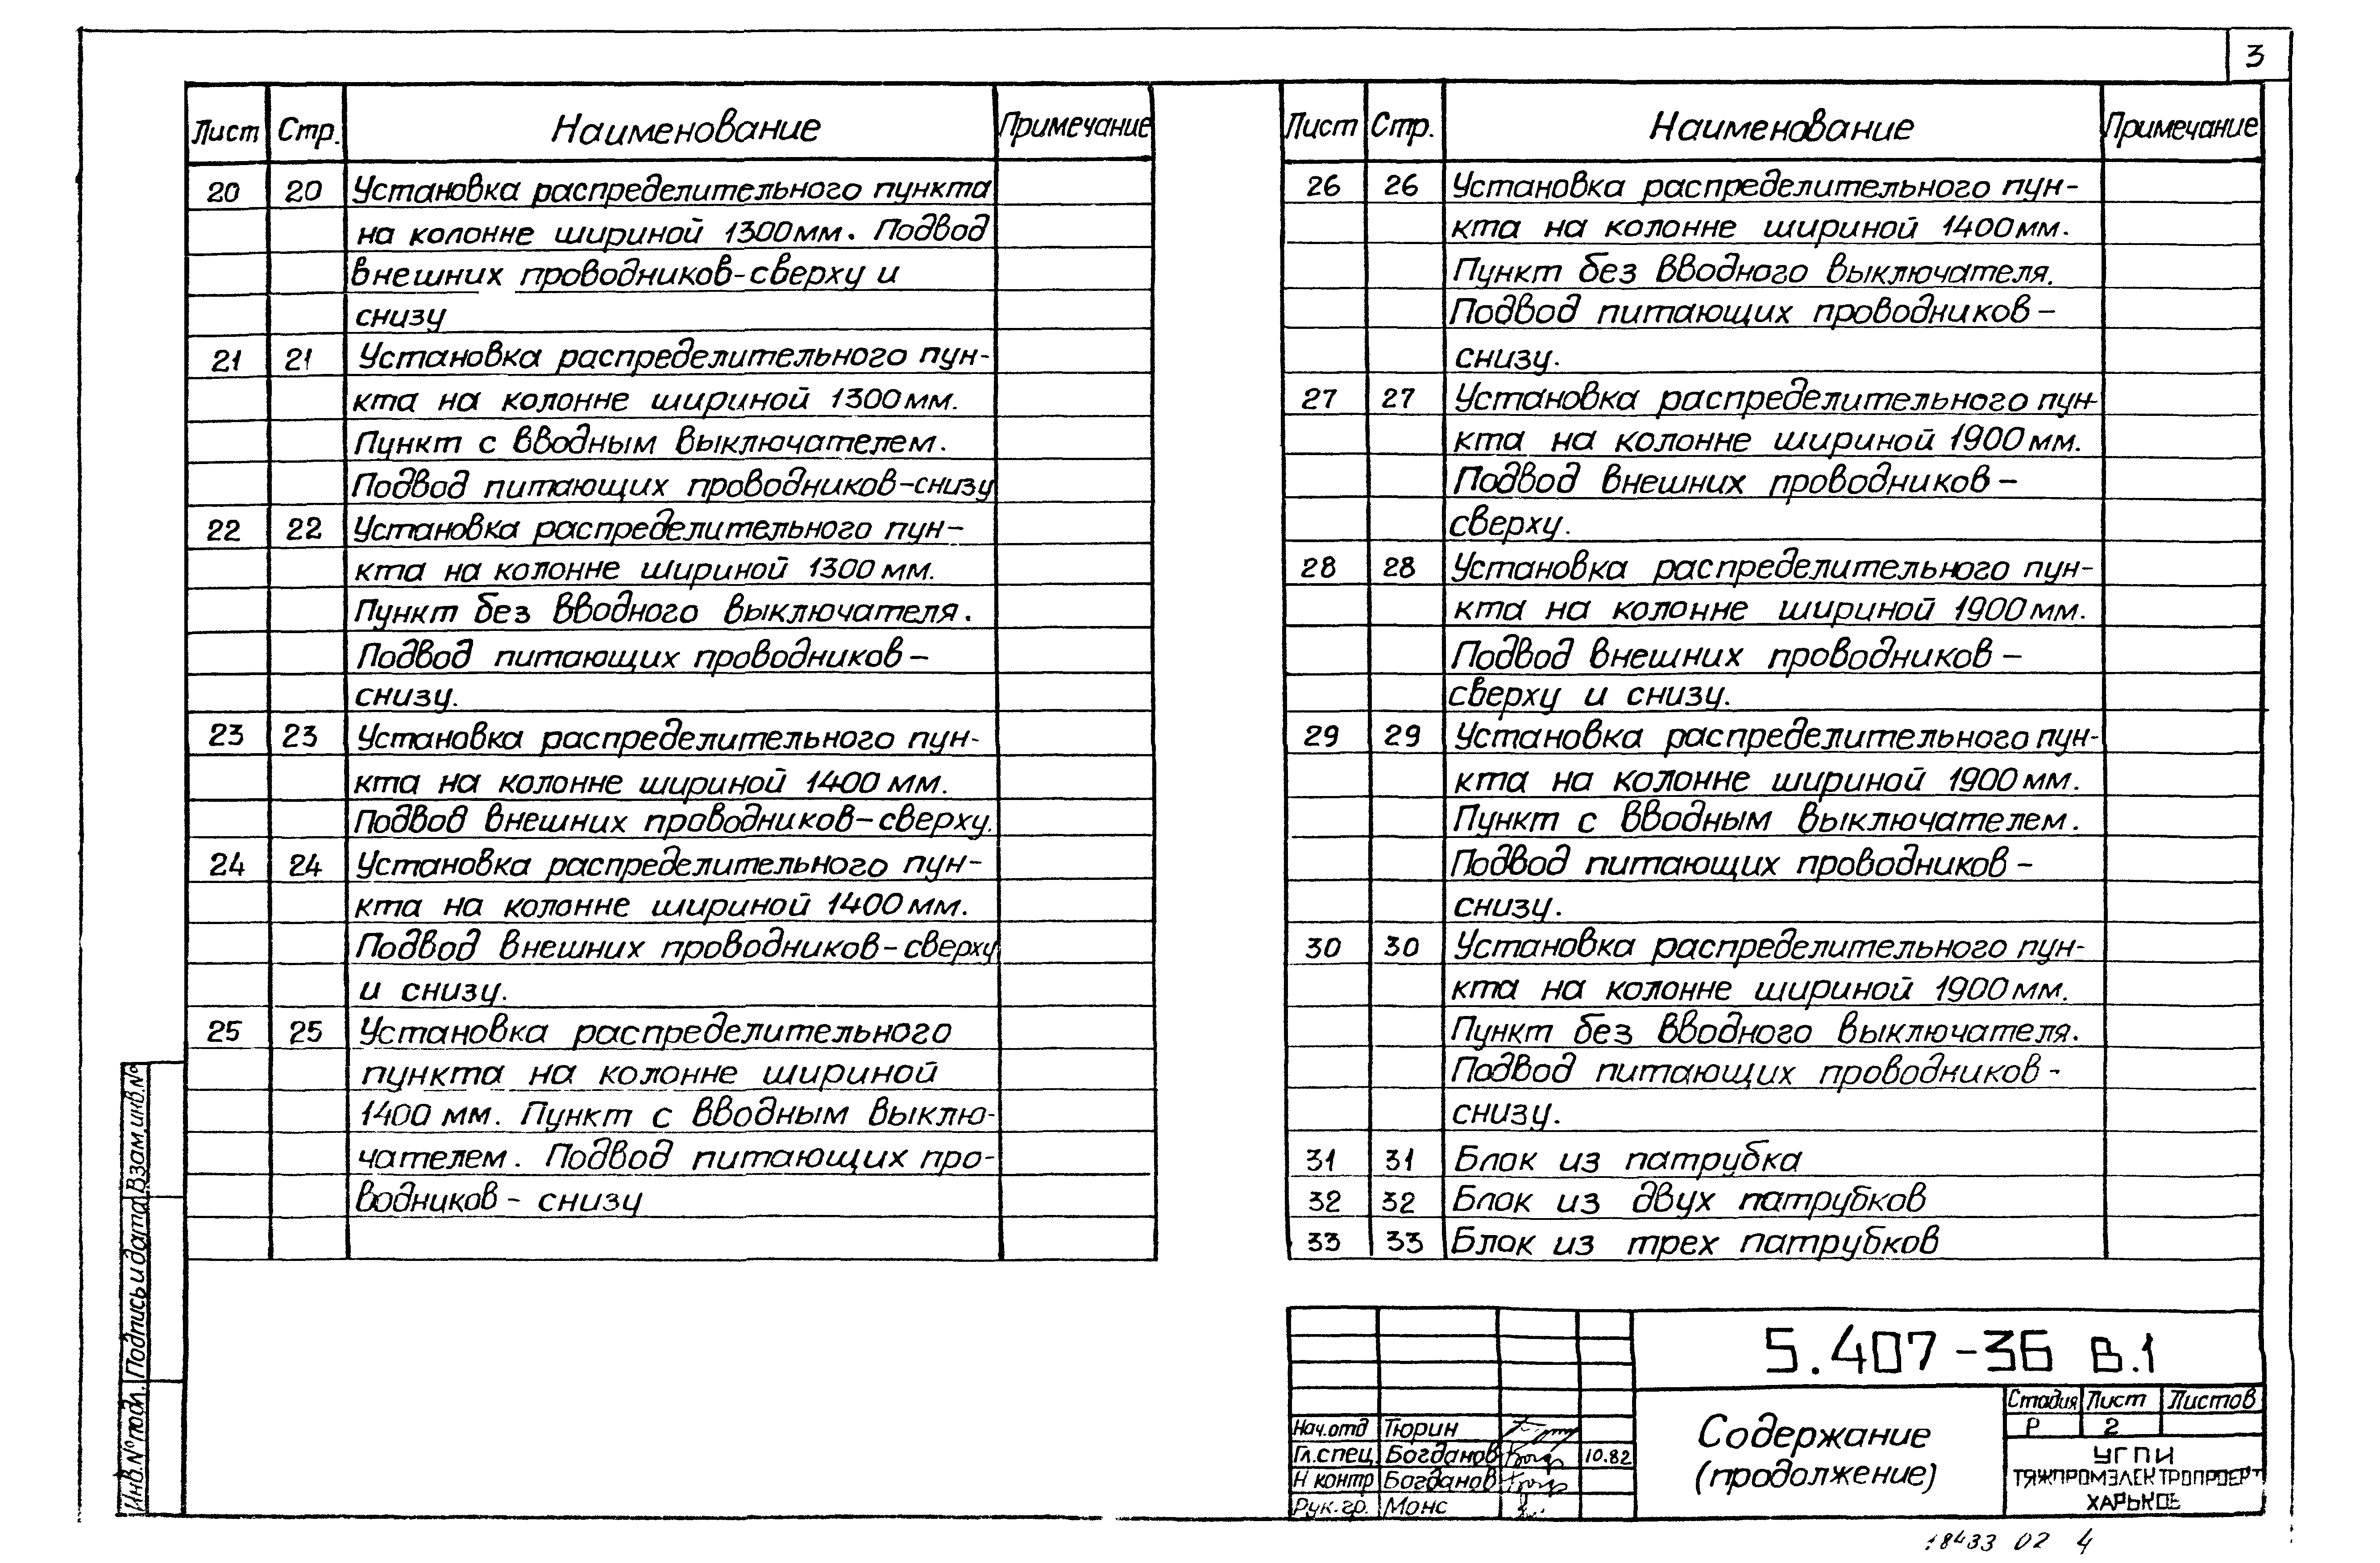 3
Лист Стр. Наименование Примечание
20 20 Установка распределительного пункта
на колонне шириной 1300мм. Подвод
внешних проводников-сверху и
снизу
21 21 Установка распределительного пун-
кта на колонне шириной 1300мм.
Пункт с вводным выключателем.
Подвод питающих проводников-снизу
22 22 Установка распределительного пун-
кта на колонне шириной 1300мм.
Пункт без вводного выключателя.
Подвод питающих проводников-
снизу.
23 23 Установка распределительного пун-
кта на колонне шириной 1400мм.
Подвод внешних проводников-сверху.
24 24 Установка распределительного пун-
кта на колонне шириной 1400мм.
Подвод внешних проводников-сверху
и снизу.
25 25 Установка распределительного
пункта на колонне шириной
1400 мм. Пункт с вводным выклю-
чателем. Подвод питающих про-
водников - снизу
Лист Стр. Наименование Примечание
26 26 Установка распределительного пун-
кта на колонне шириной 1400мм.
Пункт без вводного выключателя.
Подвод питающих проводников-
снизу.
27 27 Установка распределительного пун-
кта на колонне шириной 1900мм.
Подвод внешних проводников-
сверху.
28 28 Установка распределительного пун-
кта на колонне шириной 1900мм.
Подвод внешних проводников-
сверху и снизу.
29 29 Установка распределительного пун-
кта на колонне шириной 1900мм.
Пункт с вводным выключателем.
Подвод питающих проводников-
снизу.
30 30 Установка распределительного пун-
кта на колонне шириной 1900мм.
Пункт без вводного выключателя.
Подвод питающих проводников-
снизу.
31 31 Блок из патрубка
32 32 Блок из двух патрубков
33 33 Блок из трех патрубков
Инв.№ подл. Подпись и дата Взам инв.№
5.407-36 В.1
Нач.отд Тюрин
Гл.спец. Богданов 10.82
Н контр Богданов
Рук.гр. Монс
Содержание
(продолжение)
Стадия Лист Листов
Р 2
УГПИ
ТЯЖПРОМЭЛЕКТРОПРОЕКТ
ХАРЬКОВ
18433 02 4